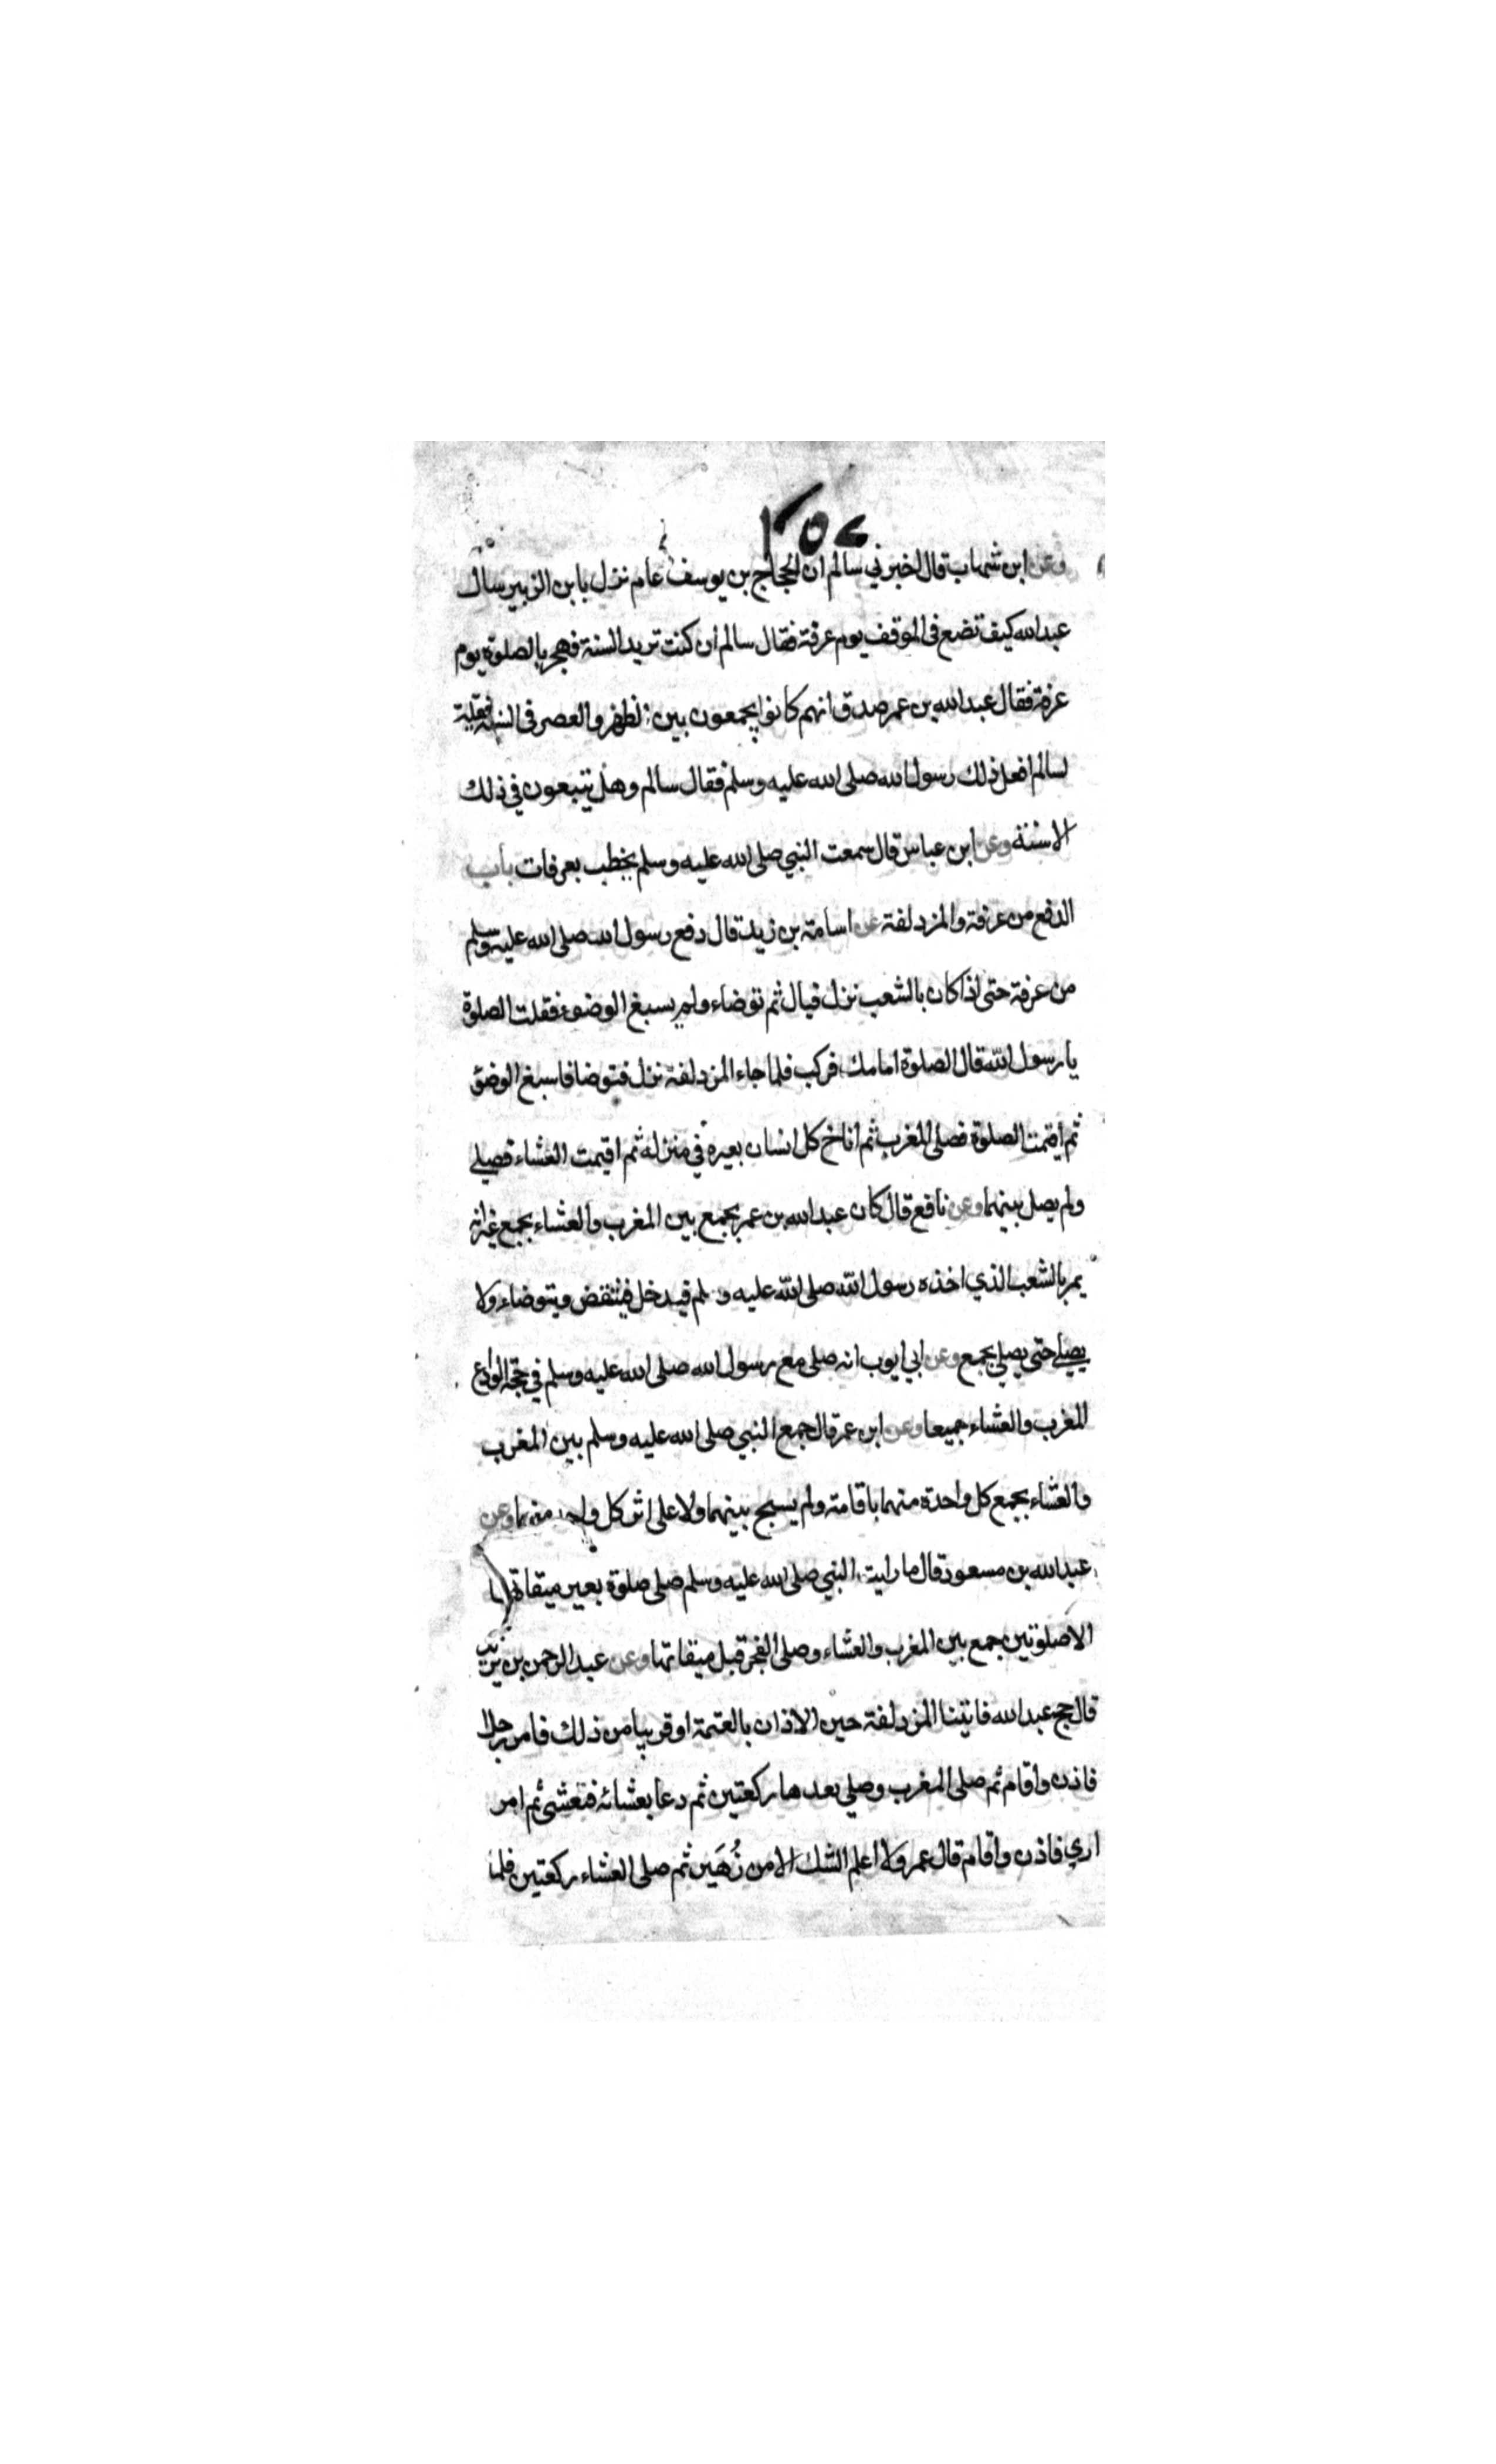 وعن ابن شهاب قال اخبرني سالم ان الحجاج بن يوسف عام نزل بابن الزبير سال
عبد الله كيف تضع في الموقف يوم عرفة فقال سالم ان كنت تريد السنة فهجر بالصلوة يوم
عرفة فقال عبد الله بن عمر صدق انهم كانوا يجمعون بين الظهر والعصر في السنة فقلت
لسالم افعل ذلك رسول الله صلى الله عليه وسلم فقال سالم وهل يتبعون في ذلك
الا سنة وعن ابن عباس قال سمعت النبي صلى الله عليه وسلم يخطب بعرفات باب
الدفع من عرفة والمزدلفة عن اسامة بن زيد قال دفع رسول الله صلى الله عليه وسلم
من عرفة حتى اذا كان بالشعب نزل فبال ثم توضاء ولم يسبغ الوضوء فقلت الصلوة
يا رسول الله قال الصلوة امامك فركب فلما جاء المزدلفة نزل فتوضا فاسبغ الوضؤ
ثم اقيمت الصلوة فصلى المغرب ثم اناخ كل انسان بعيره في منزله ثم اقيمت العشاء فصلى
ولم يصل بينهما وعن نافع قال كان عبد الله بن عمر يجمع بين المغرب والعشاء بجمع غير انه
يمر بالشعب الذي اخذه رسول الله صلى الله عليه وسلم فيدخل فينتفض ويتوضاء ولا
يصلي حتى يصلي بجمع وعن ابي ايوب انه صلى مع رسول الله صلى الله عليه وسلم في حجة الوداع
المغرب والعشاء جميعا وعن ابن عمر قال جمع النبي صلى الله عليه وسلم بين المغرب
والعشاء بجمع كل واحدة منهما باقامة ولم يسبح بينهما ولا على اثر كل واحدة منهما وعن
عبد الله بن مسعود قال ما رايت النبي صلى الله عليه وسلم صلى صلوة بغير ميقاتها
الا صلوتين جمع بين المغرب والعشاء وصلى الفجر قبل ميقاتها وعن عبد الرحمن بن يزيد
قال حج عبد الله فاتينا المزدلفة حين الاذان بالعتمة او قريبا من ذلك فامر رجلا
فاذن واقام ثم صلى المغرب وصلى بعدها ركعتين ثم دعا بعشائه فتعشى ثم امر
اري فاذن واقام قال عمر ولا اعلم الشك الا من زُهَين ثم صلى العشاء ركعتين فلما